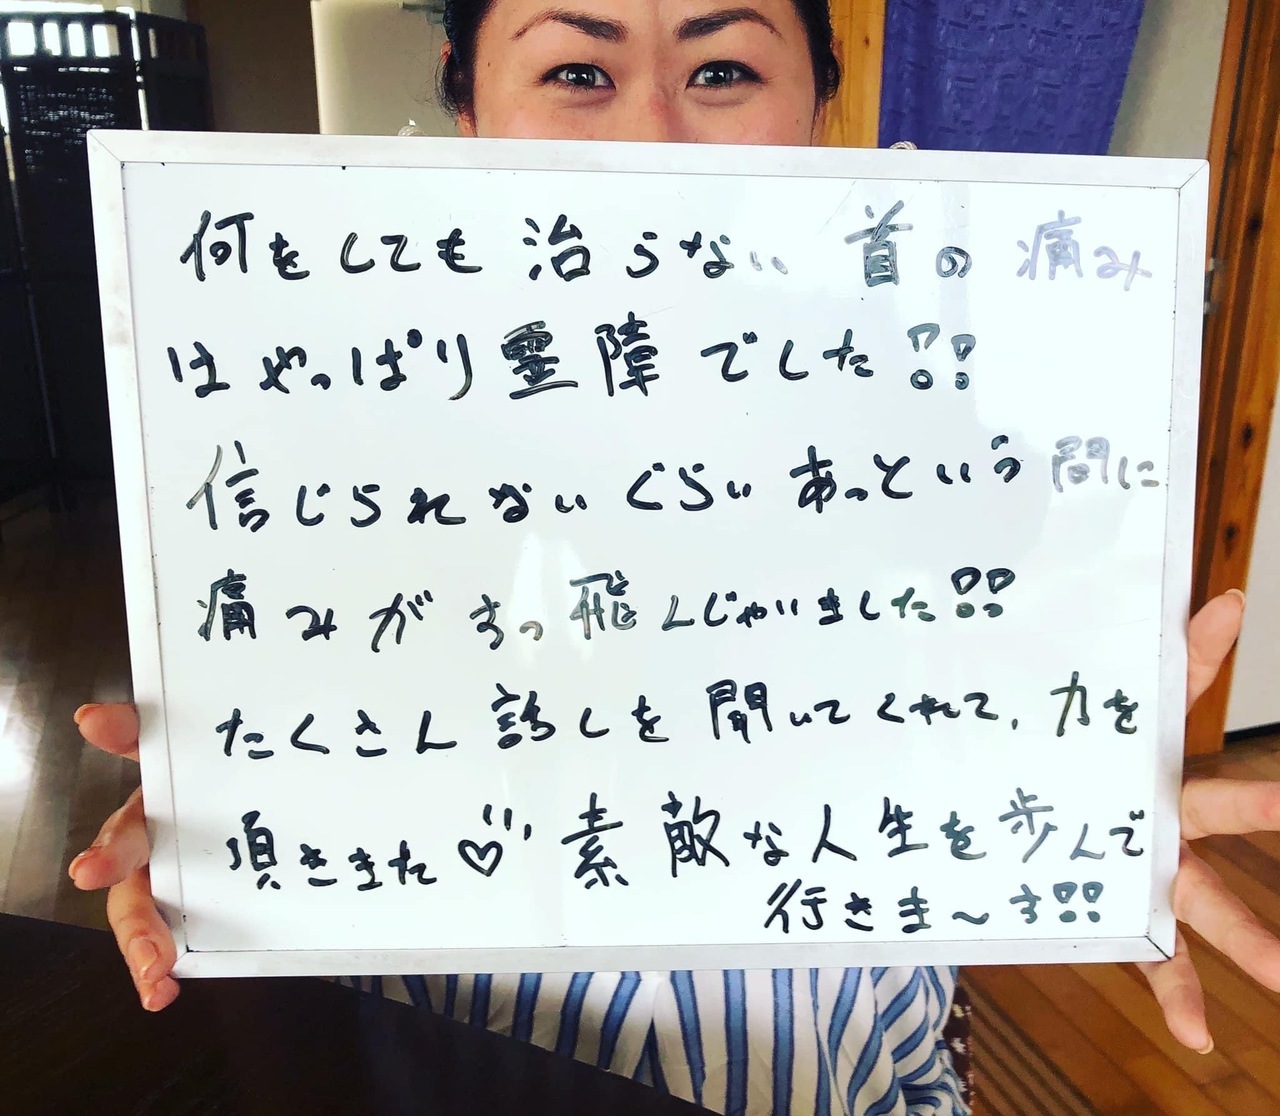 何をしても治らない首の痛み
はやっぱり霊障でした!!
信じられないぐらいあっという間に
痛みがすっ飛んじゃいました!!
たくさん話しを聞いてくれて、力を
頂ききました♡素敵な人生を歩んで
行きま〜す!!